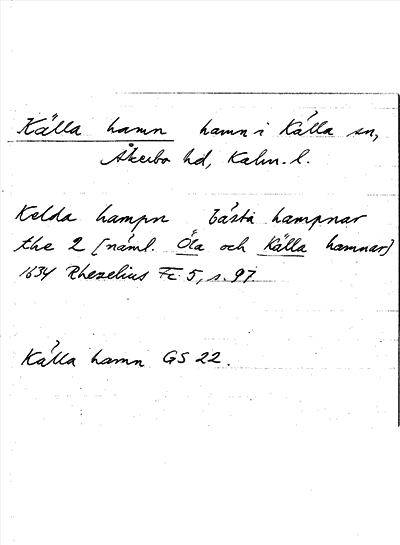 Källa hamn hamn i Källa sn,
Åkerbo hd, Kalm. l.
Kelda hampn bästa hampnar
the 2 [näml. Öta och Källa hamnar]
1634 Rhezelius Fc 5, s. 97.
Källa hamn GS 22.